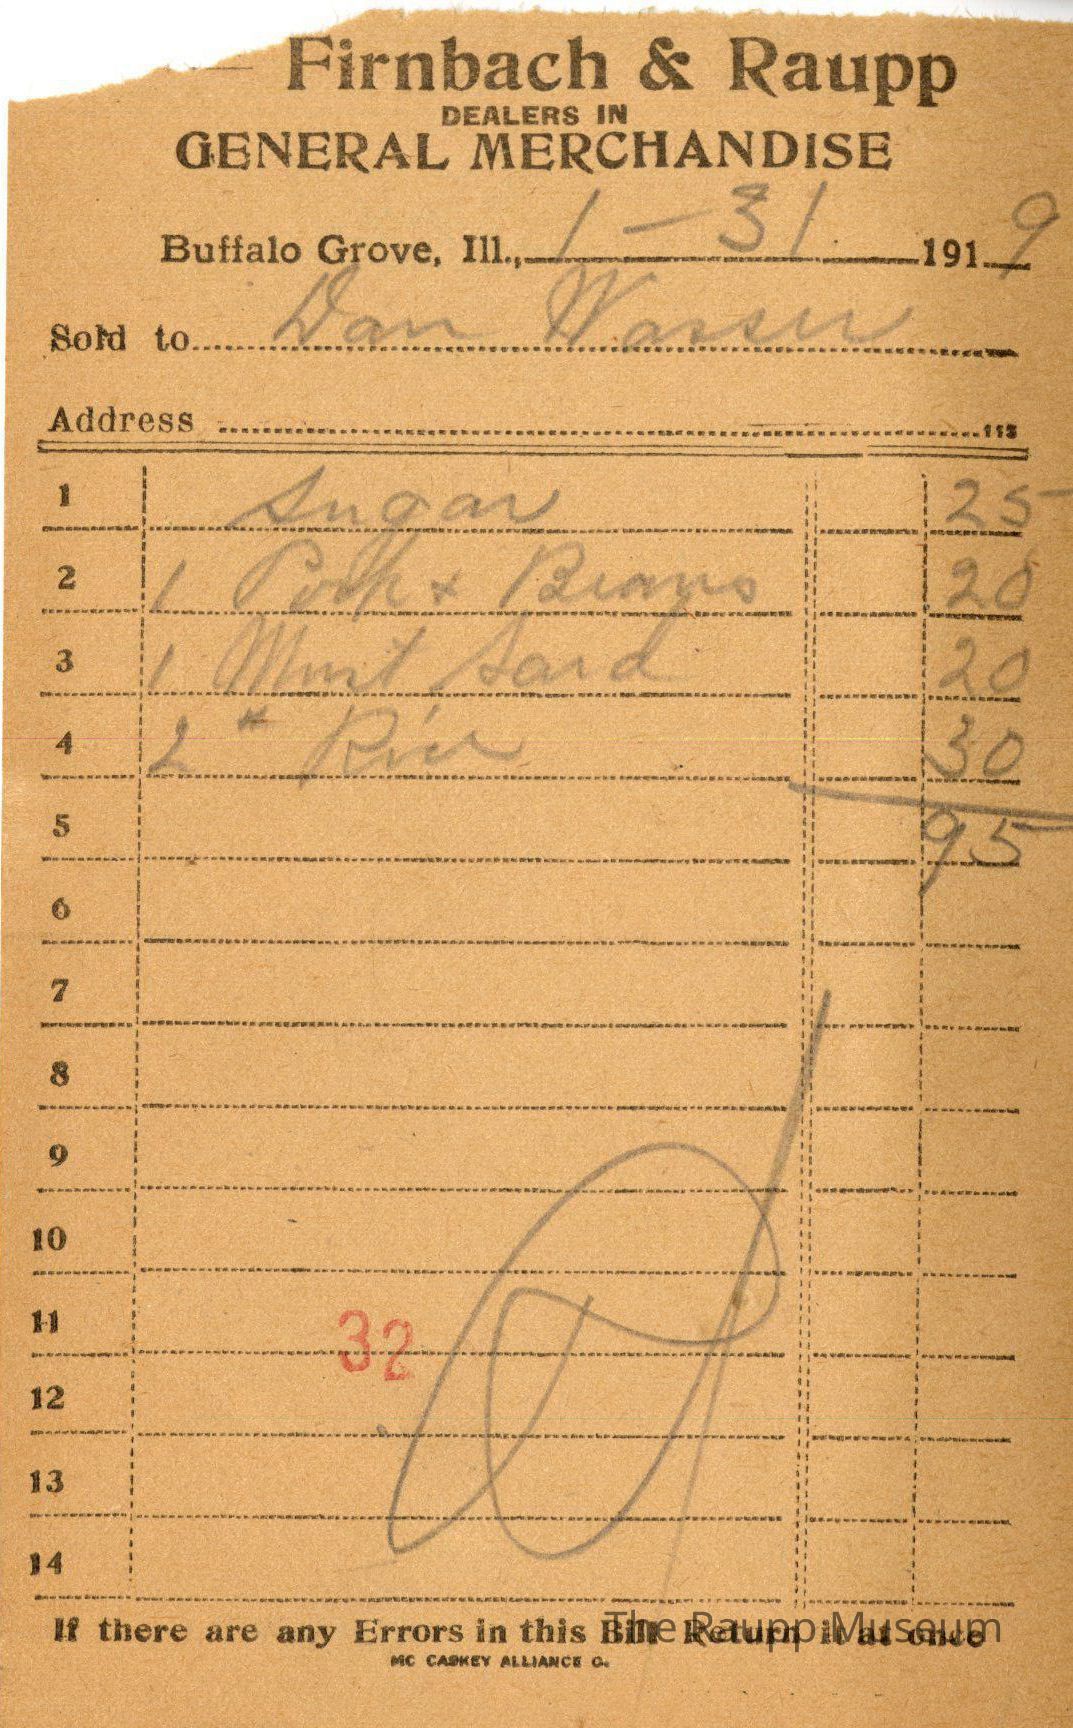 Firnbach & Raupp
DEALERS IN
GENERAL MERCHANDISE
Buffalo Grove, Ill., 1-31 1919
Sold to Dan Wasser
Address 113
1 Sugar 25
2 1 Pork & Beans 20
3 1 Must Sard 20
4 2 # Rice 30
5 95
6
7
8
9
10
11
32
12
13
14
If there are any Errors in this Bill Return it at once
The Raupp Museum
MC CASKEY ALLIANCE O.